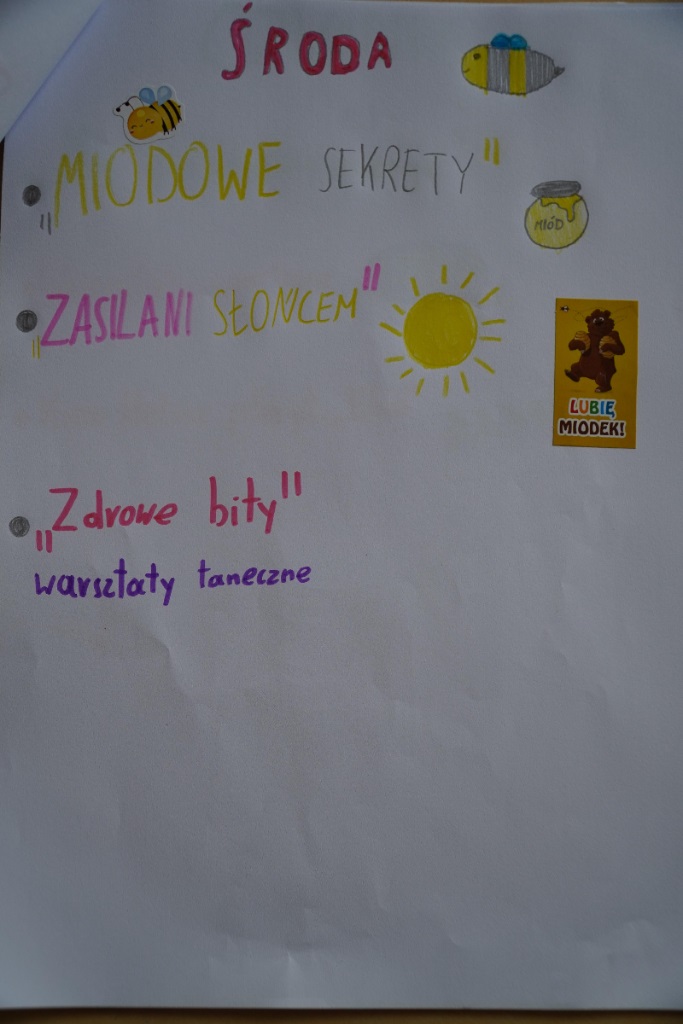 ŚRODA
„MIODOWE SEKRETY"
MIÓD
„ZASILANI SŁOŃCEM"
LUBIĘ
MIODEK!
„Zdrowe bity"
warsztaty taneczne